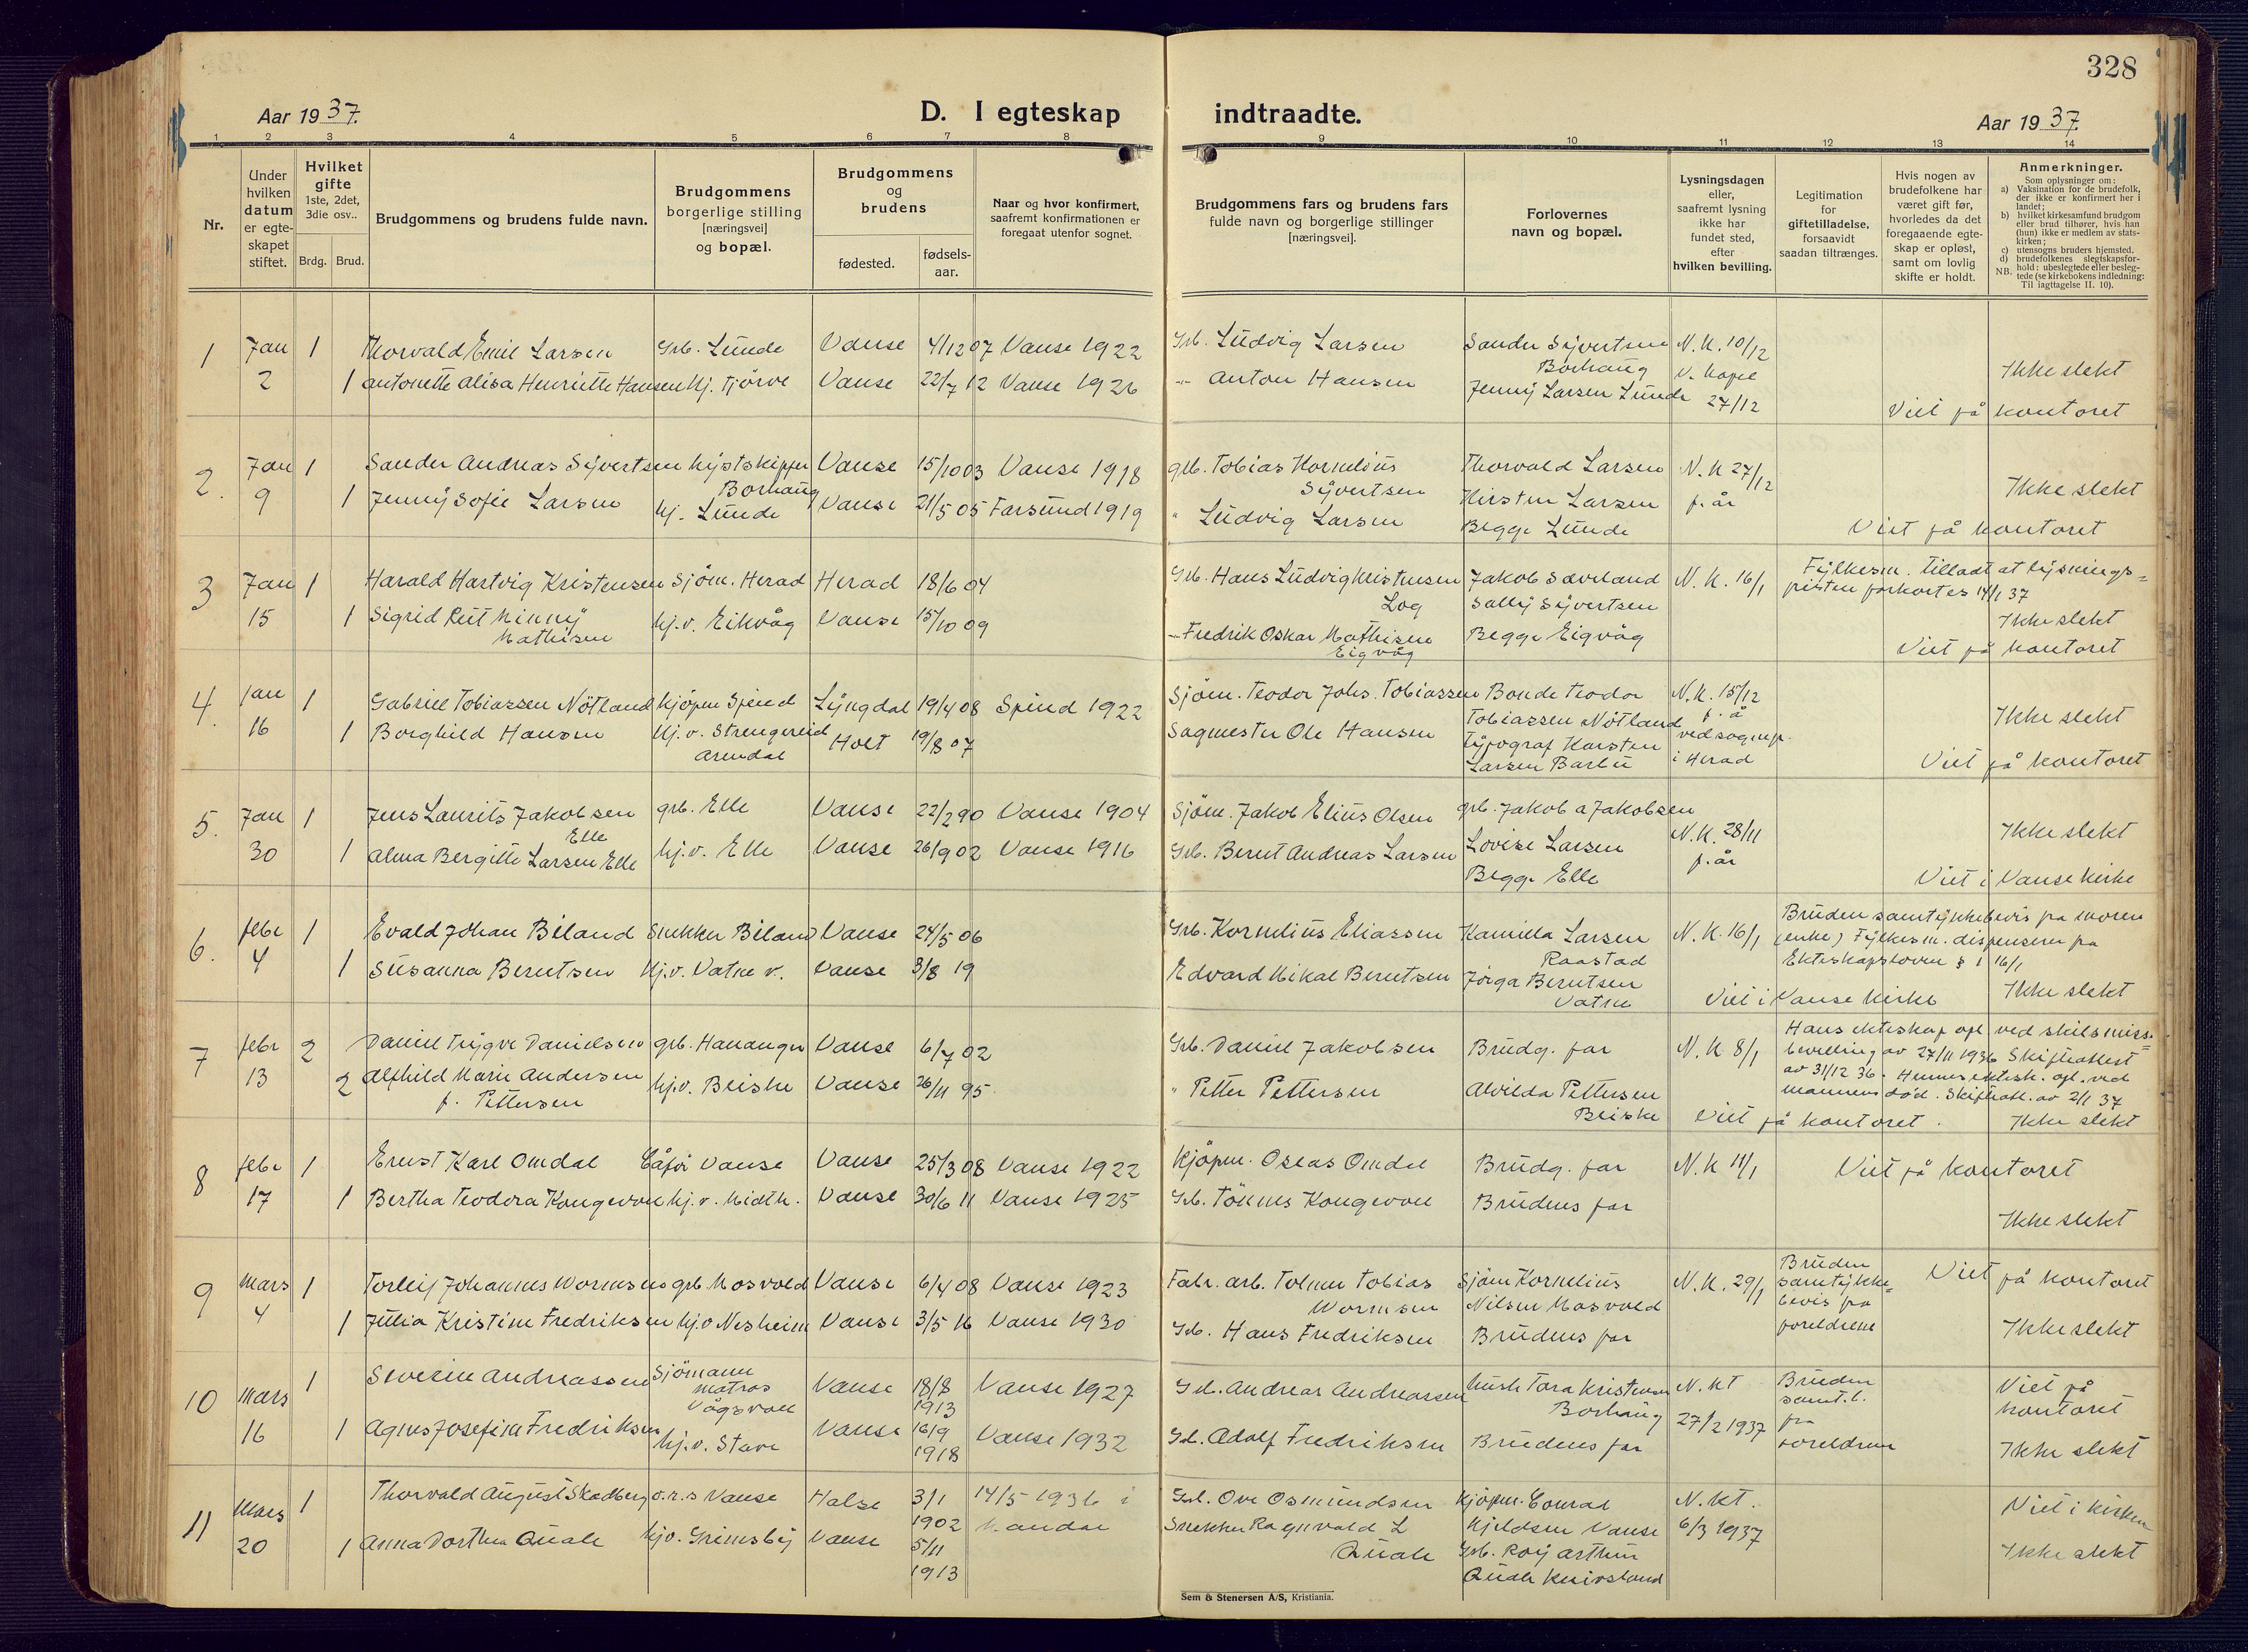 328
Aar 1937.
D. I egteskap
indtraadte.
Aar 1937.
1 2 3 4 5 6 7 8 9 10 11 12 13 14
Nr.
Under hvilken datum er egte-skapet stiftet.
Hvilket gifte 1ste, 2det, 3die osv..
Brdg. Brud.
Brudgommens og brudens fulde navn.
Brudgommens borgerlige stilling [næringsvei] og bopæl.
Brudgommens og brudens
fødested.
fødsels-aar.
Naar og hvor konfirmert, saafremt konfirmationen er foregaat utenfor sognet.
Brudgommens fars og brudens fars fulde navn og borgerlige stillinger [næringsvei].
Forlovernes navn og bopæl.
Lysningsdagen eller, saafremt lysning ikke har fundet sted, efter hvilken bevilling.
Legitimation for giftetilladelse, forsaavidt saadan tiltrænges.
Hvis nogen av brudefolkene har været gift før, hvorledes da det foregaaende egte-skap er opløst, samt om lovlig skifte er holdt.
Anmerkninger.
Som oplysninger om:
a) Vaksination for de brudefolk, der ikke er konfirmert her i landet;
b) hvilket kirkesamfund brudgom eller brud tilhører, hvis han (hun) ikke er medlem av stats-kirken;
c) utensogns bruders hjemsted.
d) brudefolkenes slegtskapsfor-hold: ubeslegtede eller besleg-tede (se kirkebokens indledning: Til iagttagelse II. 10).
NB.
1 Jan 1 Thorvald Emil Larsen Grb. Lunde Vanse 4/12 07 Vanse 1922 Grb. Ludvig Larsen Sander Syvertsen N.K. 10/12
Borhaug
2 1 Antonette Alisa Henriette Hansen hj. Tjörve Vanse 22/7 12 Vanse 1926 -"- Anton Hansen Jenny Larsen Lunde 27/12 Ikke slekt
Viet på kontoret
2. Jan 1 Sander Andreas Syvertsen Kystskipper Vanse 15/10 03 Vanse 1918 grb. Tobias Kornelius Thorvald Larsen N.K 27/12
Borhaug Syvertsen
9 1 Jenny Sofie Larsen hj. Lunde Vanse 21/5 05 Farsund 1919 " Ludvig Larsen Kirsten Larsen f. år Ikke slekt
Begge Lunde Viet på kontoret
3 Jan 1 Harald Hartvig Kristensen Sjöm. Herad Herad 18/6 04 Grb. Hans Ludvig Kristensen Jakob Saveland N.K. 16/1 Fylkesm. tilladt at lysnings=
Log Sally Syvertsen fristen forkortes 14/1 37
15 1 Sigrid Rut Minny hj.v. Eikvåg Vanse 15/10 09 Ikke slekt
Mathisen - Fredrik Oskar Mathisen Begge Eigvåg Viet på kontoret
Eigvåg
4. jan 1 Gabriel Tobiassen Nötland kjöpm Spind Lyngdal 19/4 08 Spind 1922 Sjöm. Teodor Johs. Tobiassen Bonde Teodor N.K. 15/12
Tobiassen Nötland f. å
16 1 Borghild Hansen hj.v. Strengereid Holt 19/8 07 Sagmester Ole Hansen Typograf Karsten ved sognepr. Ikke slekt
Arendal Larsen Barbu i Herad Viet på kontoret
5. Jan 1 Jens Laurits Jakobsen grb. Elle Vanse 22/2 90 Vanse 1904 Sjöm. Jakob Elius Olsen grb. Jakob A Jakobsen N.K. 28/11
Elle Ikke slekt
30 1 Alma Bergitte Larsen Elle hj.v. Elle Vanse 26/9 02 Vanse 1916 Grb. Bernt Andreas Larsen Lovise Larsen f. år
Begge Elle Viet i Vanse kirke
6. febr 1 Evald Johan Biland Snekker Biland Vanse 24/5 06 Grb. Kornelius Eliassen Kamilla Larsen N.K. 16/1 Bruden samtykkebevis fra moren
Raastad (enke) Fylkesm. dispenserer fra
4 1 Susanna Berntsen hj.v. Vatne v. Vanse 3/8 19 Edvard Mikal Berntsen Jörga Berntsen Ekteskapsloven § 1 16/1
Vatne Viet i Vanse kirke Ikke slekt
7 febr 2 Daniel Trygve Danielsen grb. Hananger Vanse 6/7 02 Grb. Daniel Jakobsen Brudg. far N.K 8/1 Hans ekteskap opl ved skilsmisse=
bevilling av 27/11 1936 Skifteattest
13 2 Alfhild Marie Andersen hj.v. Briske Vanse 26/11 95. " Petter Pettersen Alvilda Pettersen av 31/12 36. Hennes ektesk. opl. ved
f. Pettersen Briske mannens död. Skifteatt. av 2/1 37
Viet på kontoret. Ikke slekt
8 febr 1 Ernst Karl Omdal Vanse Vanse 25/3 08 Vanse 1922 Kjöpm. Oseas Omdal Brudg. far N.K 11/1 Viet på kontoret
17 1 Bertha Teodora Kongevoll hj.v. Midth. Vanse 30/6 11 Vanse 1925 Grb. Tönnes Kongevoll Brudens far
Ikke slekt
9 mars 1 Torleif Johannes Wormsen grb. Mosvold Vanse 6/4 08 Vanse 1923 Fabr. arb. Tolmer Tobias Sjöm Kornelius N.K. 29/1 Bruden samtykke=bevis fra foreldrene Viet på kontoret
Wormsen Nilsen Mosvold
4 1 Julia Kristine Fredriksen hj.v Nesheim Vanse 3/5 16 Vanse 1930 Grb. Hans Fredriksen Brudens far Ikke slekt
10 mars 1 Severin Andreassen Sjömann Vanse 18/8 1913 Vanse 1927 Grb. Andreas Andreassen Tora Kristensen N.kt Bruden samt.b. fra foreldrene Viet på kontoret
matros Borhaug
Vågsvoll
16 1 Agnes Josefine Fredriksen hj.v. Stave Vanse 16/9 1918 Vanse 1932 Grb. Adolf Fredriksen Brudens far 27/2 1937 Ikke slekt
11 Mars 1 Thorvald August Skadberg o.r.s Vanse Halse 3/1 1902 14/5 1936 i Grb. Ove Osmundsen Kjöpm. Conrad N.kt. Viet i kirken
Mandal Kjeldsen Vanse 6/3 1937
20 1 Anna Dorthea Quale hj.v. Grimsby Vanse 5/11 1913 Snekker Ragnvald L Grb. Roy Arthur Ikke slekt
Quale Quale Knivsland
Sem & Stenersen A/S, Kristiania.